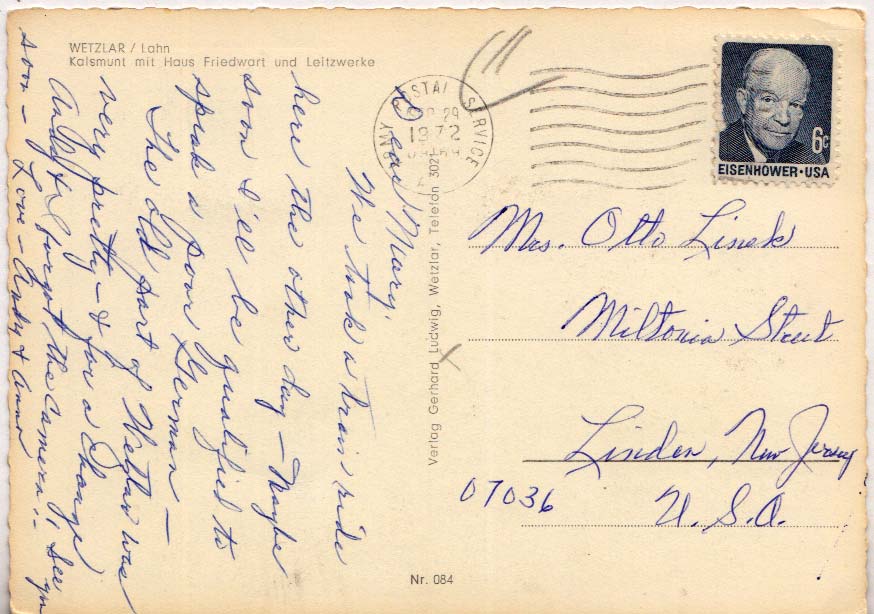 WETZLAR / Lahn
Kalsmunt mit Haus Friedwart und Leitzwerke
Dear Mary,
We took a train ride
here the other day - Maybe
soon I'll be qualified to
speak a poor German -
The old part of Wetzlar was
very pretty - & for a change
Andy & I forgot the camera!! See you
soon - Love - Andy & Anna
Verlag Gerhard Ludwig, Wetzlar, Telefon 3021
ARMY POSTAL SERVICE
29
1972
6c
EISENHOWER·USA
Mrs. Otto Linek
Miltonia Street
Linden, New Jersey
07036
U.S.A.
Nr. 084